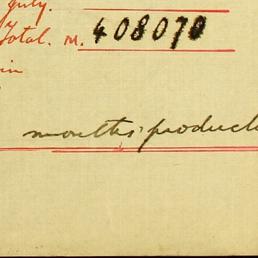 guty.
y
Total. M. 408070
in
months' product